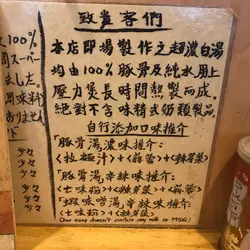 致貴客們
本店即場製作之超濃白湯
均由100%豚骨及純水用上
壓力煲長時間熬製而成。
絕對不含味精或奶類製品。
自行添加口味推介
「豚骨湯濃味推介:
<拉麵汁>+<蒜蓉>+<辣芽菜>
「豚骨湯辛辣味推介:
<七味粉>+<辣芽菜>+<蒜蓉>
「蝦味噌湯辛辣味推介:
<七味粉>+<辣芽菜>
Our soup doesn't contain any milk or MSG!!
100%
スーパー
ました。
調味料
ありません